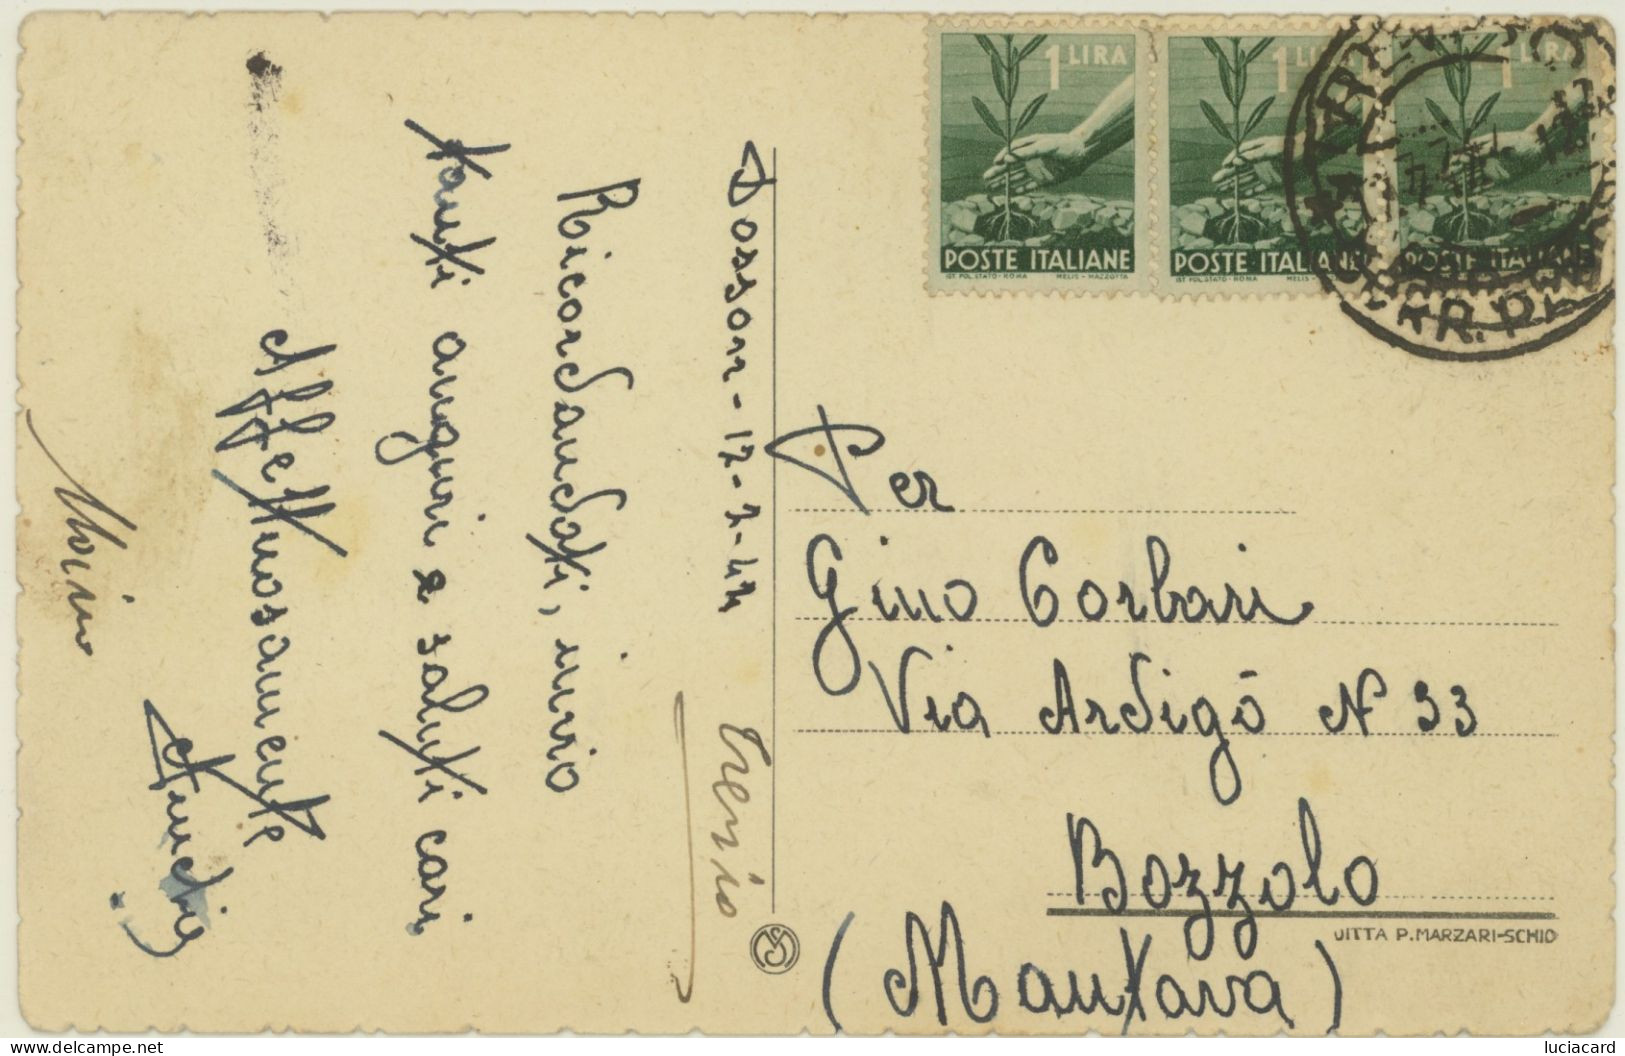 1 LIRA
POSTE ITALIANE
IST. POL. STATO - ROMA MELIS - MAZZOTTA
1 LIRA
POSTE ITALIANE
IST. POL. STATO - ROMA MELIS -
1 LIRA
POSTE ITALIANE
Dosson - 17 - 7 - 47
Ricordandoti, invio
tanti auguri e saluti cari
Affettuosamente
Per
Gino Corbari
Via Ardigò N 33
Bozzolo
(Mantova)
DITTA P. MARZARI-SCHIO
luciacard